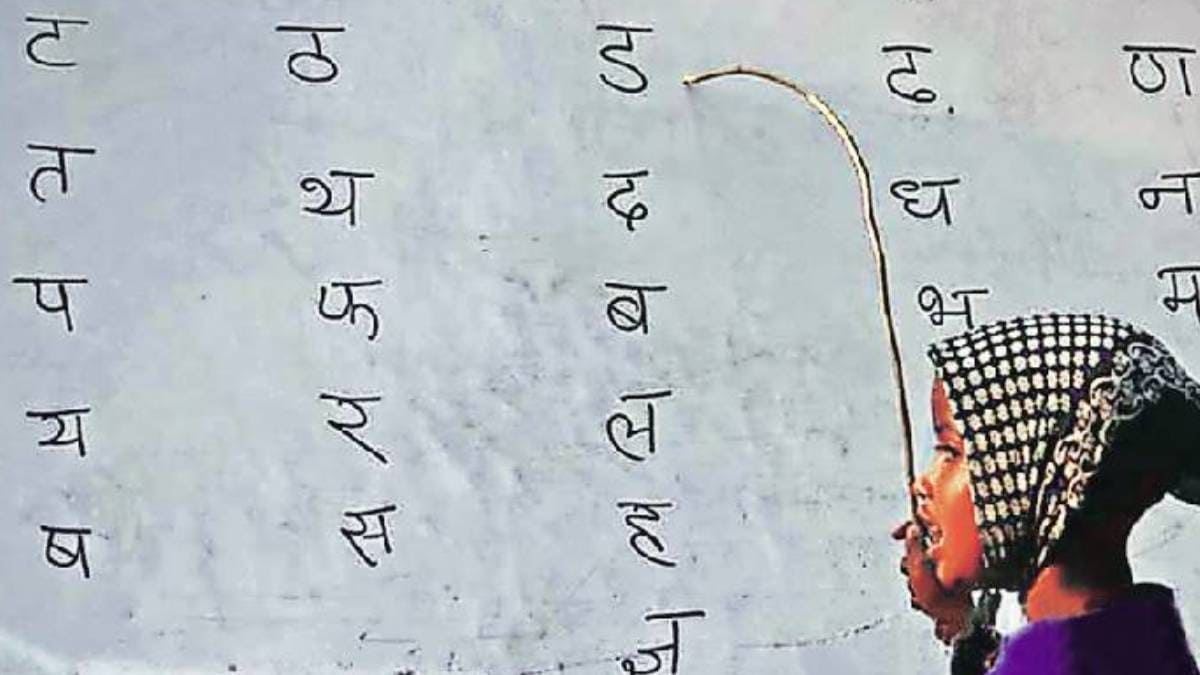 ट ठ ड ढ़ ण
त थ द ध न
प फ ब भ म
य र ल
ष स